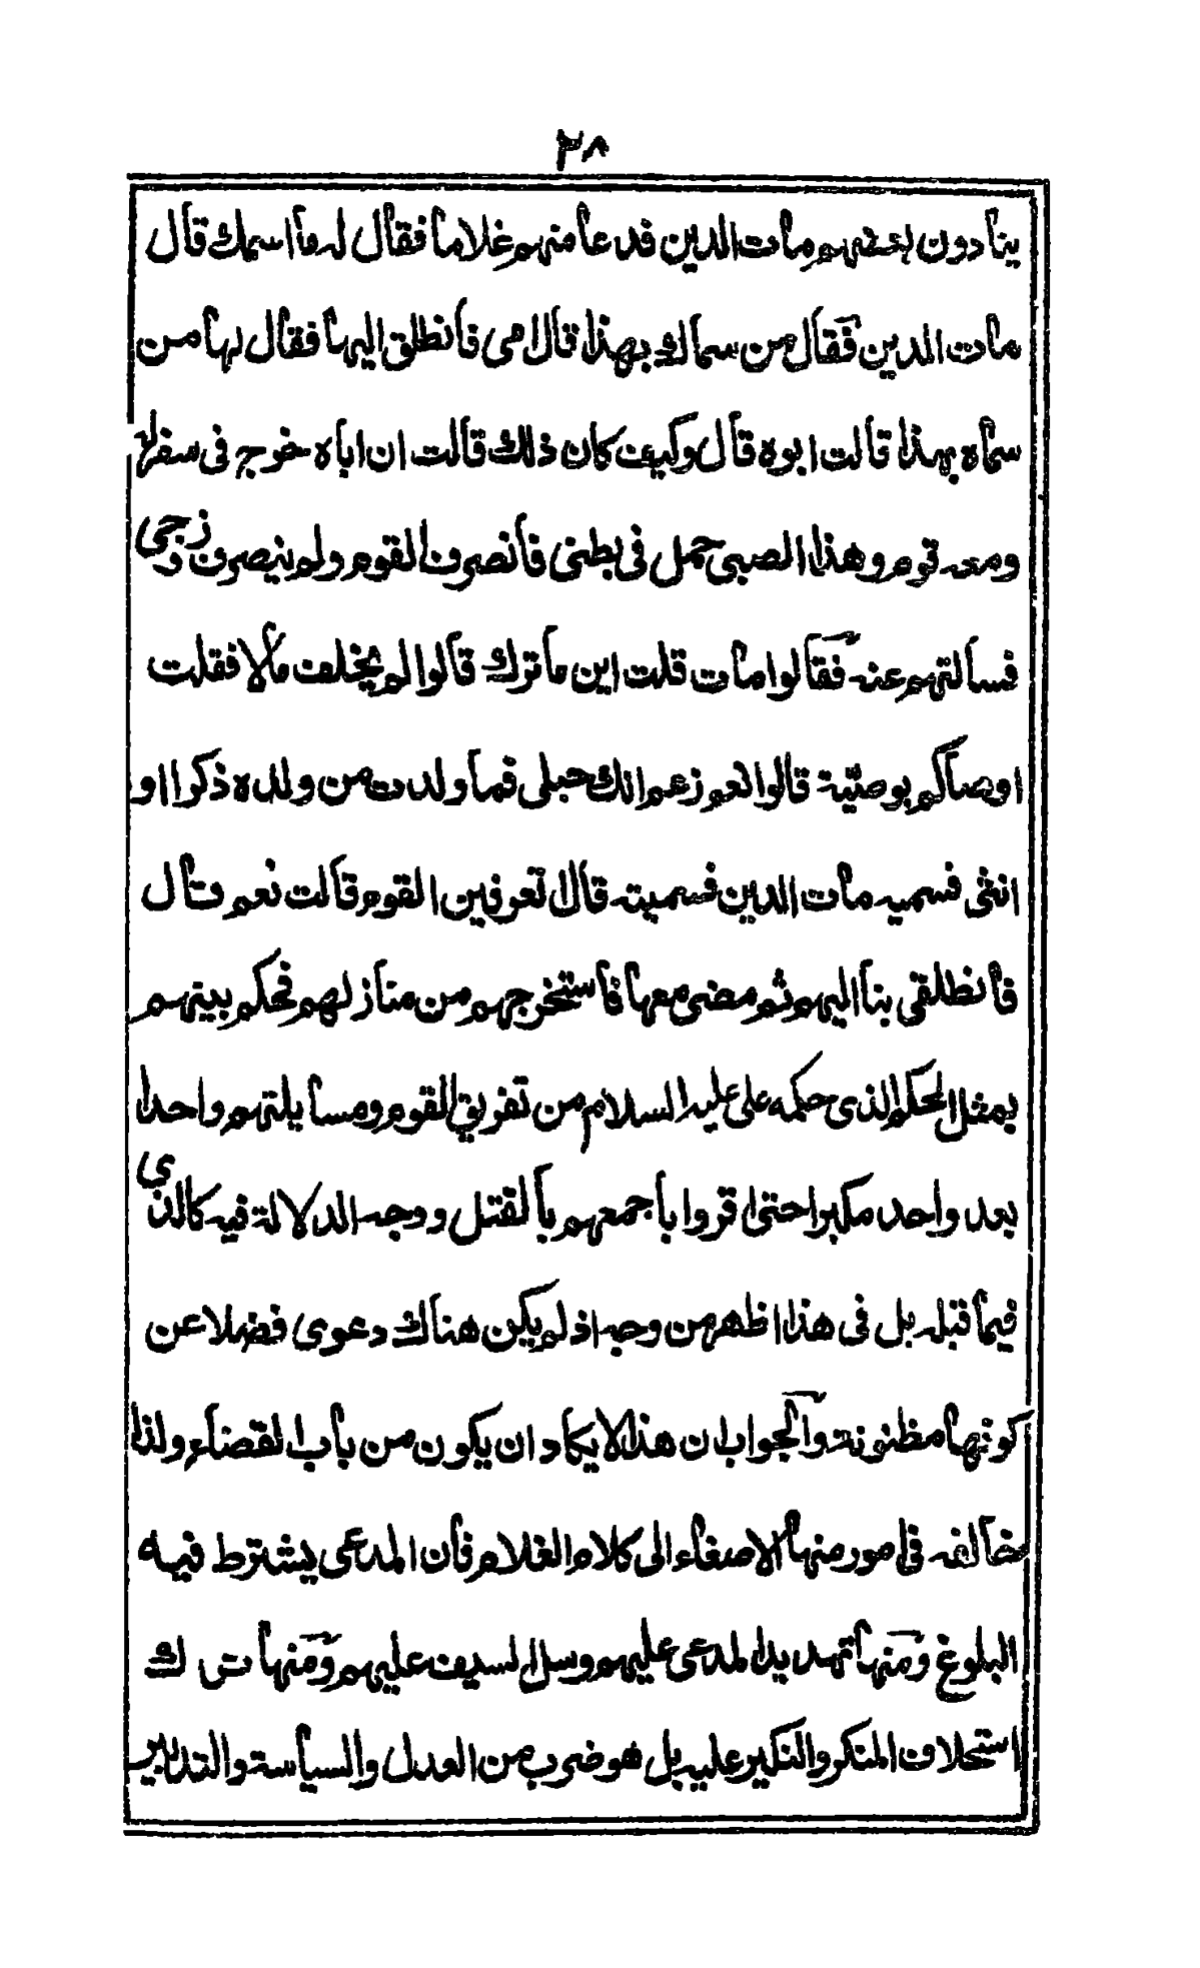 ٢٨
ينادون بعضهم مات الدين فدعا منهم غلاما فقال له ما اسمك قال
مات الدين فقال من سماك بهذا قال امى فانطلق اليها فقال لها من
سماه بهذا قالت ابوه قال وكيف كان ذلك قالت ان اباه خرج فى سفر له
ومعه قوم وهذا الصبى حمل فى بطنى فانصرف القوم ولم ينصرف زوجى
فسالتهم عنه فقالوا مات قلت اين ما ترك قالوا لم يخلف مالا فقلت
اوصاكم بوصيّة قالوا نعم زعم انك حبلى فما ولدت من ولده ذكرا او
انثى فسميه مات الدين فسميته قال اتعرفين القوم قالت نعم قال
فانطلقى بنا اليهم ثم مضى معها فاستخرجهم من منازلهم فحكم بينهم
بمثل الحكم الذى حكمه على عليه السلام من تفريق القوم ومسايلتهم واحدا
بعد واحد مكبرا حتى اقروا باجمعهم بالقتل ووجه الدلالة فيه كالذي
فيما قبله بل فى هذا اظهر من وجه اذ لم يكن هناك دعوى فضلا عن
كونها مظنونة والجواب ان هذا لا يكاد ان يكون من باب القضاء ولذا
خالفه فى امور منها الاصغاء الى كلام الغلام فان المدعى يشترط فيه
البلوغ ومنها تهديد المدعى عليهم وسل السيف عليهم ومنها ترك
استحلاف المنكر والنكير عليه بل هو ضرب من العدل والسياسة والتدابير